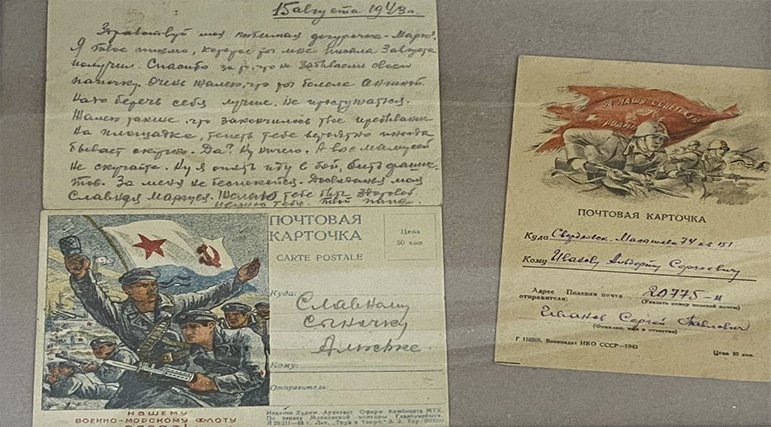 15 августа 1943 г.
Здравствуй моя любимая дочурочка - Марю!
Я твое письмо, которое ты мне писала 3 августа
получил. Спасибо за то, что не забываешь своего
папочку. Очень жалею, что ты болела ангиной.
Надо беречь себя лучше. Не простужаться.
Жалею также что закончилось твое пребывание
на площадке, теперь тебе вероятно иногда
бывает скучно. Да? Ну ничего. А вы с мамусей
не скучайте. Ну я опять иду в бой, бить фашис-
тов. За меня не беспокойся. До свиданья моя
Славная Маруся. Желаю тебе быть здоровой.
Целую тебя. Твой папа.
НАШЕМУ
ВОЕННО-МОРСКОМУ ФЛОТУ
ПОЧТОВАЯ
КАРТОЧКА
CARTE POSTALE
Цена
30 коп.
Куда:
Славному
сыночку
Алику
Кому:
Отправитель:
ЗА НАШУ СОВЕТСКУЮ
РОДИНУ
ПОЧТОВАЯ КАРТОЧКА
Куда Свердловск. Малышева 74 кв 151
Кому Иванову Альберту Сергеевичу
Адрес отправителя: Полевая почта 20775-н
(Указать номер полевой почты)
Иванов Сергей Павлович
(Фамилия, имя и отчество)
Воениздат НКО СССР—1943
Цена 20 коп.